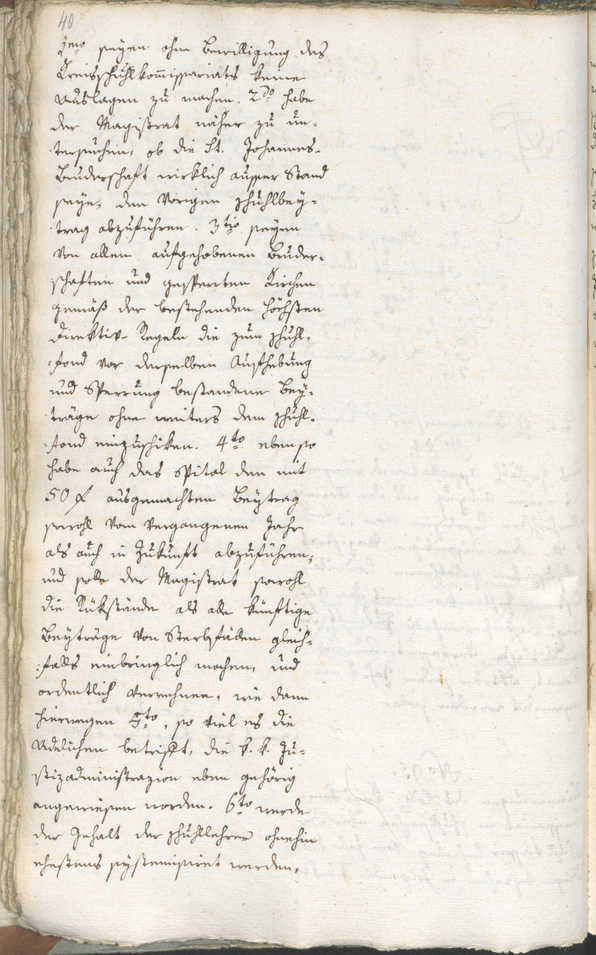 40
1mo seyen ohne Bewilligung des
Kreisschuhlkom̅issariats keine
Auslagen zu machen. 2do habe
der Magistrat näher zu un-
tersuchen, ob die St. Johannes-
Bruderschaft wirklich ausser Stand
seye, den vorigen Schuhlbey-
trag abzuführen. 3tio seyen
von allen aufgehobenen Bruder-
schaften und gesperrten Kirchen
gemäß der bestehenden höchsten
Direktiv-Regeln die zum Schuhl-
fond vor derselben Aufhebung
und Sperrung bestandene Bey-
träge ohne weiters dem Schuhl-
fond einzuschiken. 4to ebenso
habe auch das Spital den mit
50 f ausgemachten Beytrag
sowohl vom vergangenen Jahr
als auch in Zukunft abzuführen,
und solle der Magistrat sowohl
die Rükstände als alle künftige
Beyträge von Sterbfällen gleich-
falls einbringlich machen, und
ordentlich verrechnen, wie dann
hierwegen 5to, so viel es die
Adelichen betrifft, die k. k. Ju-
stizadministrazion eben gehörig
angewiesen worden. 6to werde
der Gehalt der Schuhllehrer ohnehin
ehestens systemisiret werden.